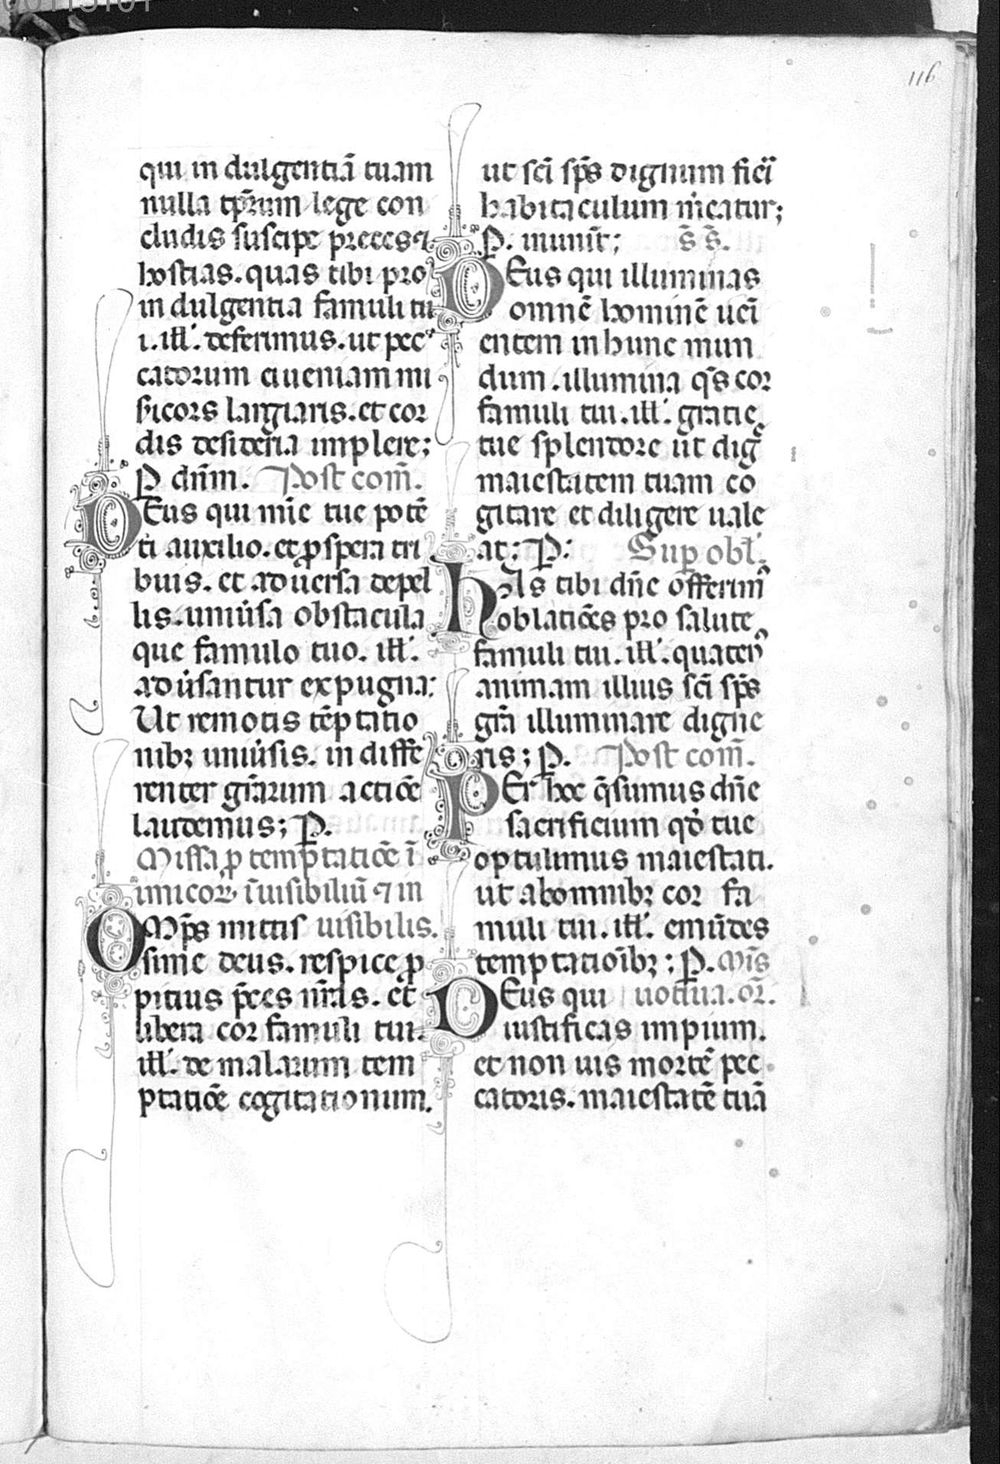 116
qui in dulgentiā tuam
nulla tp̄rum lege con
cludis suscipe preces ⁊
hostias. quas tibi pro
in dulgentia famuli tu
i. ill̓. deferimus. ut pec
catorum ei ueniam mi
s̓icors largiaris. et cor
dis desideria implere;
P dn̄m. Post com̄.
DEus qui mīe tue potē
ti auxilio. et ꝓspera tri
buis. et aduersa depel
lis. uniu̓sa obstacula
que famulo tuo. ill̓.
adu̓santur expugna:
Ut remotis tēptatio
nibꝫ uniu̓sis. in diffe
renter gr̄arum actiōe
laudemus; P.
Missa ꝓ temptatiōe ī
imicoꝝ īuisibiliū ⁊ in
OMp̄s mitis uisibilis.
sime deus. respice ꝓ
pitius p̄ces nr̄as. et
libera cor famuli tui.
ill̓. de malarum tem
ptatiōe cogitationum.
ut sc̄i sp̄s dignum fieri
habitaculum m̓eatur;
P. munīt; s̄ s̄.
DEus qui illuminas
omnē hominē ueni
entem in hunc mun
dum. illumina q̄s cor
famuli tui. ill̓. gratie
tue splendore ut dig
maiestatem tuam co
gitare et diligere uale
at; P: Sup obl̄.
HAs tibi dn̄e offerim
oblatiōes pro salute
famuli tui. ill̓. quaten
animam illius sc̄i sp̄s
gr̄a illuminare digne
ris; P. Post com̄.
PEr hoc q̄sumus dn̄e
sacrificium qd̄ tue
optulimus maiestati.
ut abomnibꝫ cor fa
muli tui. ill̓. emūdes
temptatioībꝫ; P. Mīs
DEus qui uotiua. or̄.
iustificas impium.
et non uis mortē pec
catoris. maiestatē tuā